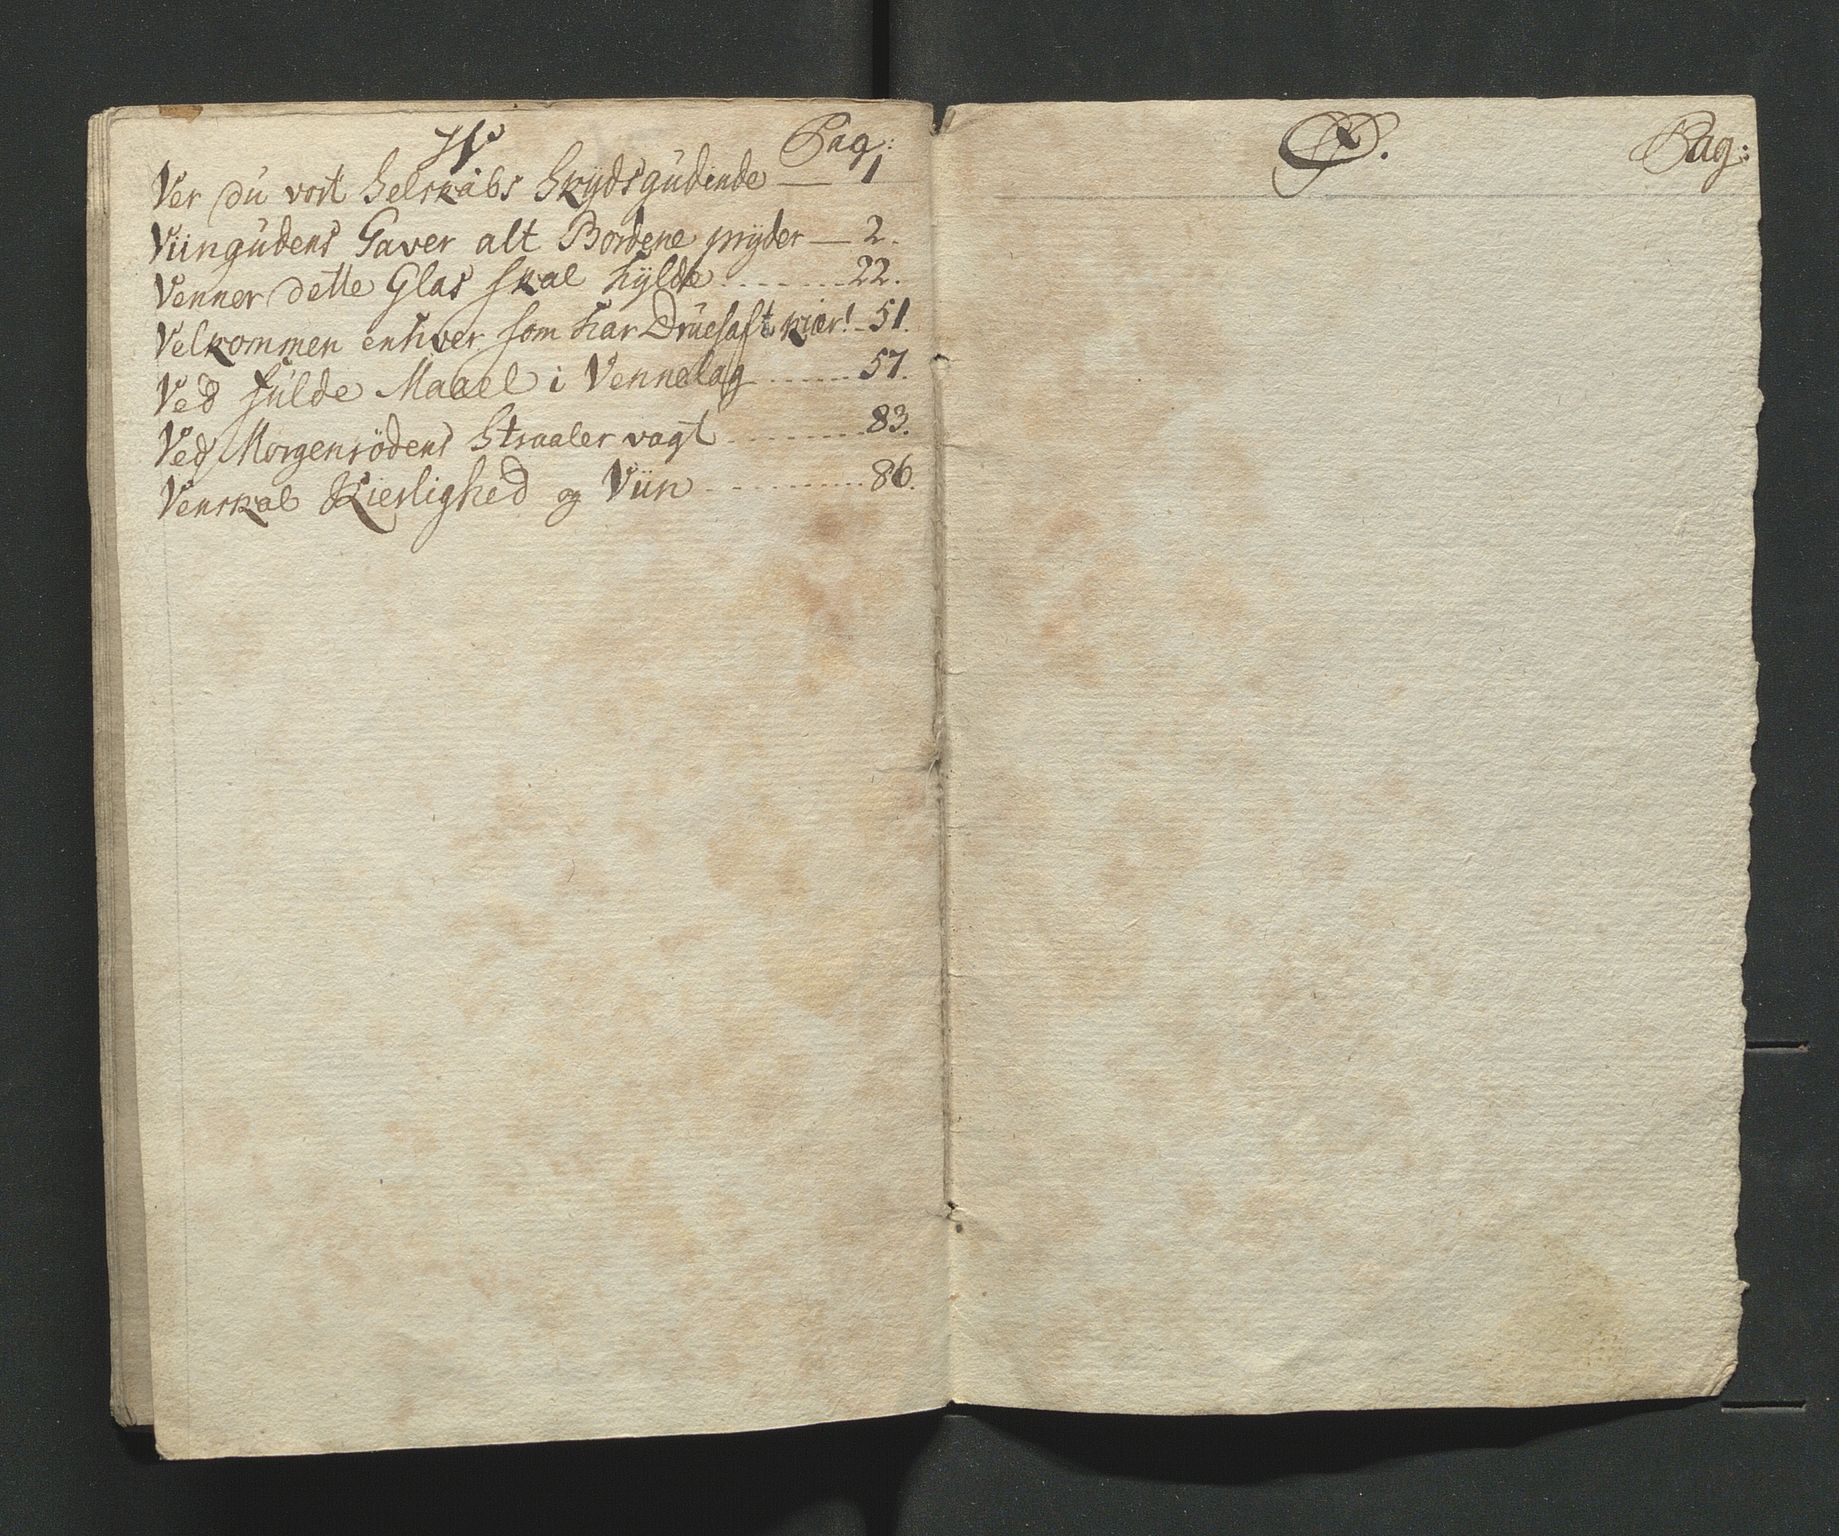 V Pag:
Ver du vort Selskabs Skydsgudinde — 1
Viingudens Gaver alt Bordene pryder — 2.
Venner dette Glas skal hylde ........ 22.
Velkommen enhver som har Druesaft kiær! - 51.
Ved fulde Maael i Vennelag ....... 57.
Ved Morgenrödens Straaler vagt ......... 83.
Venskab Kierlighed og Viin .......... 86.
Pag: